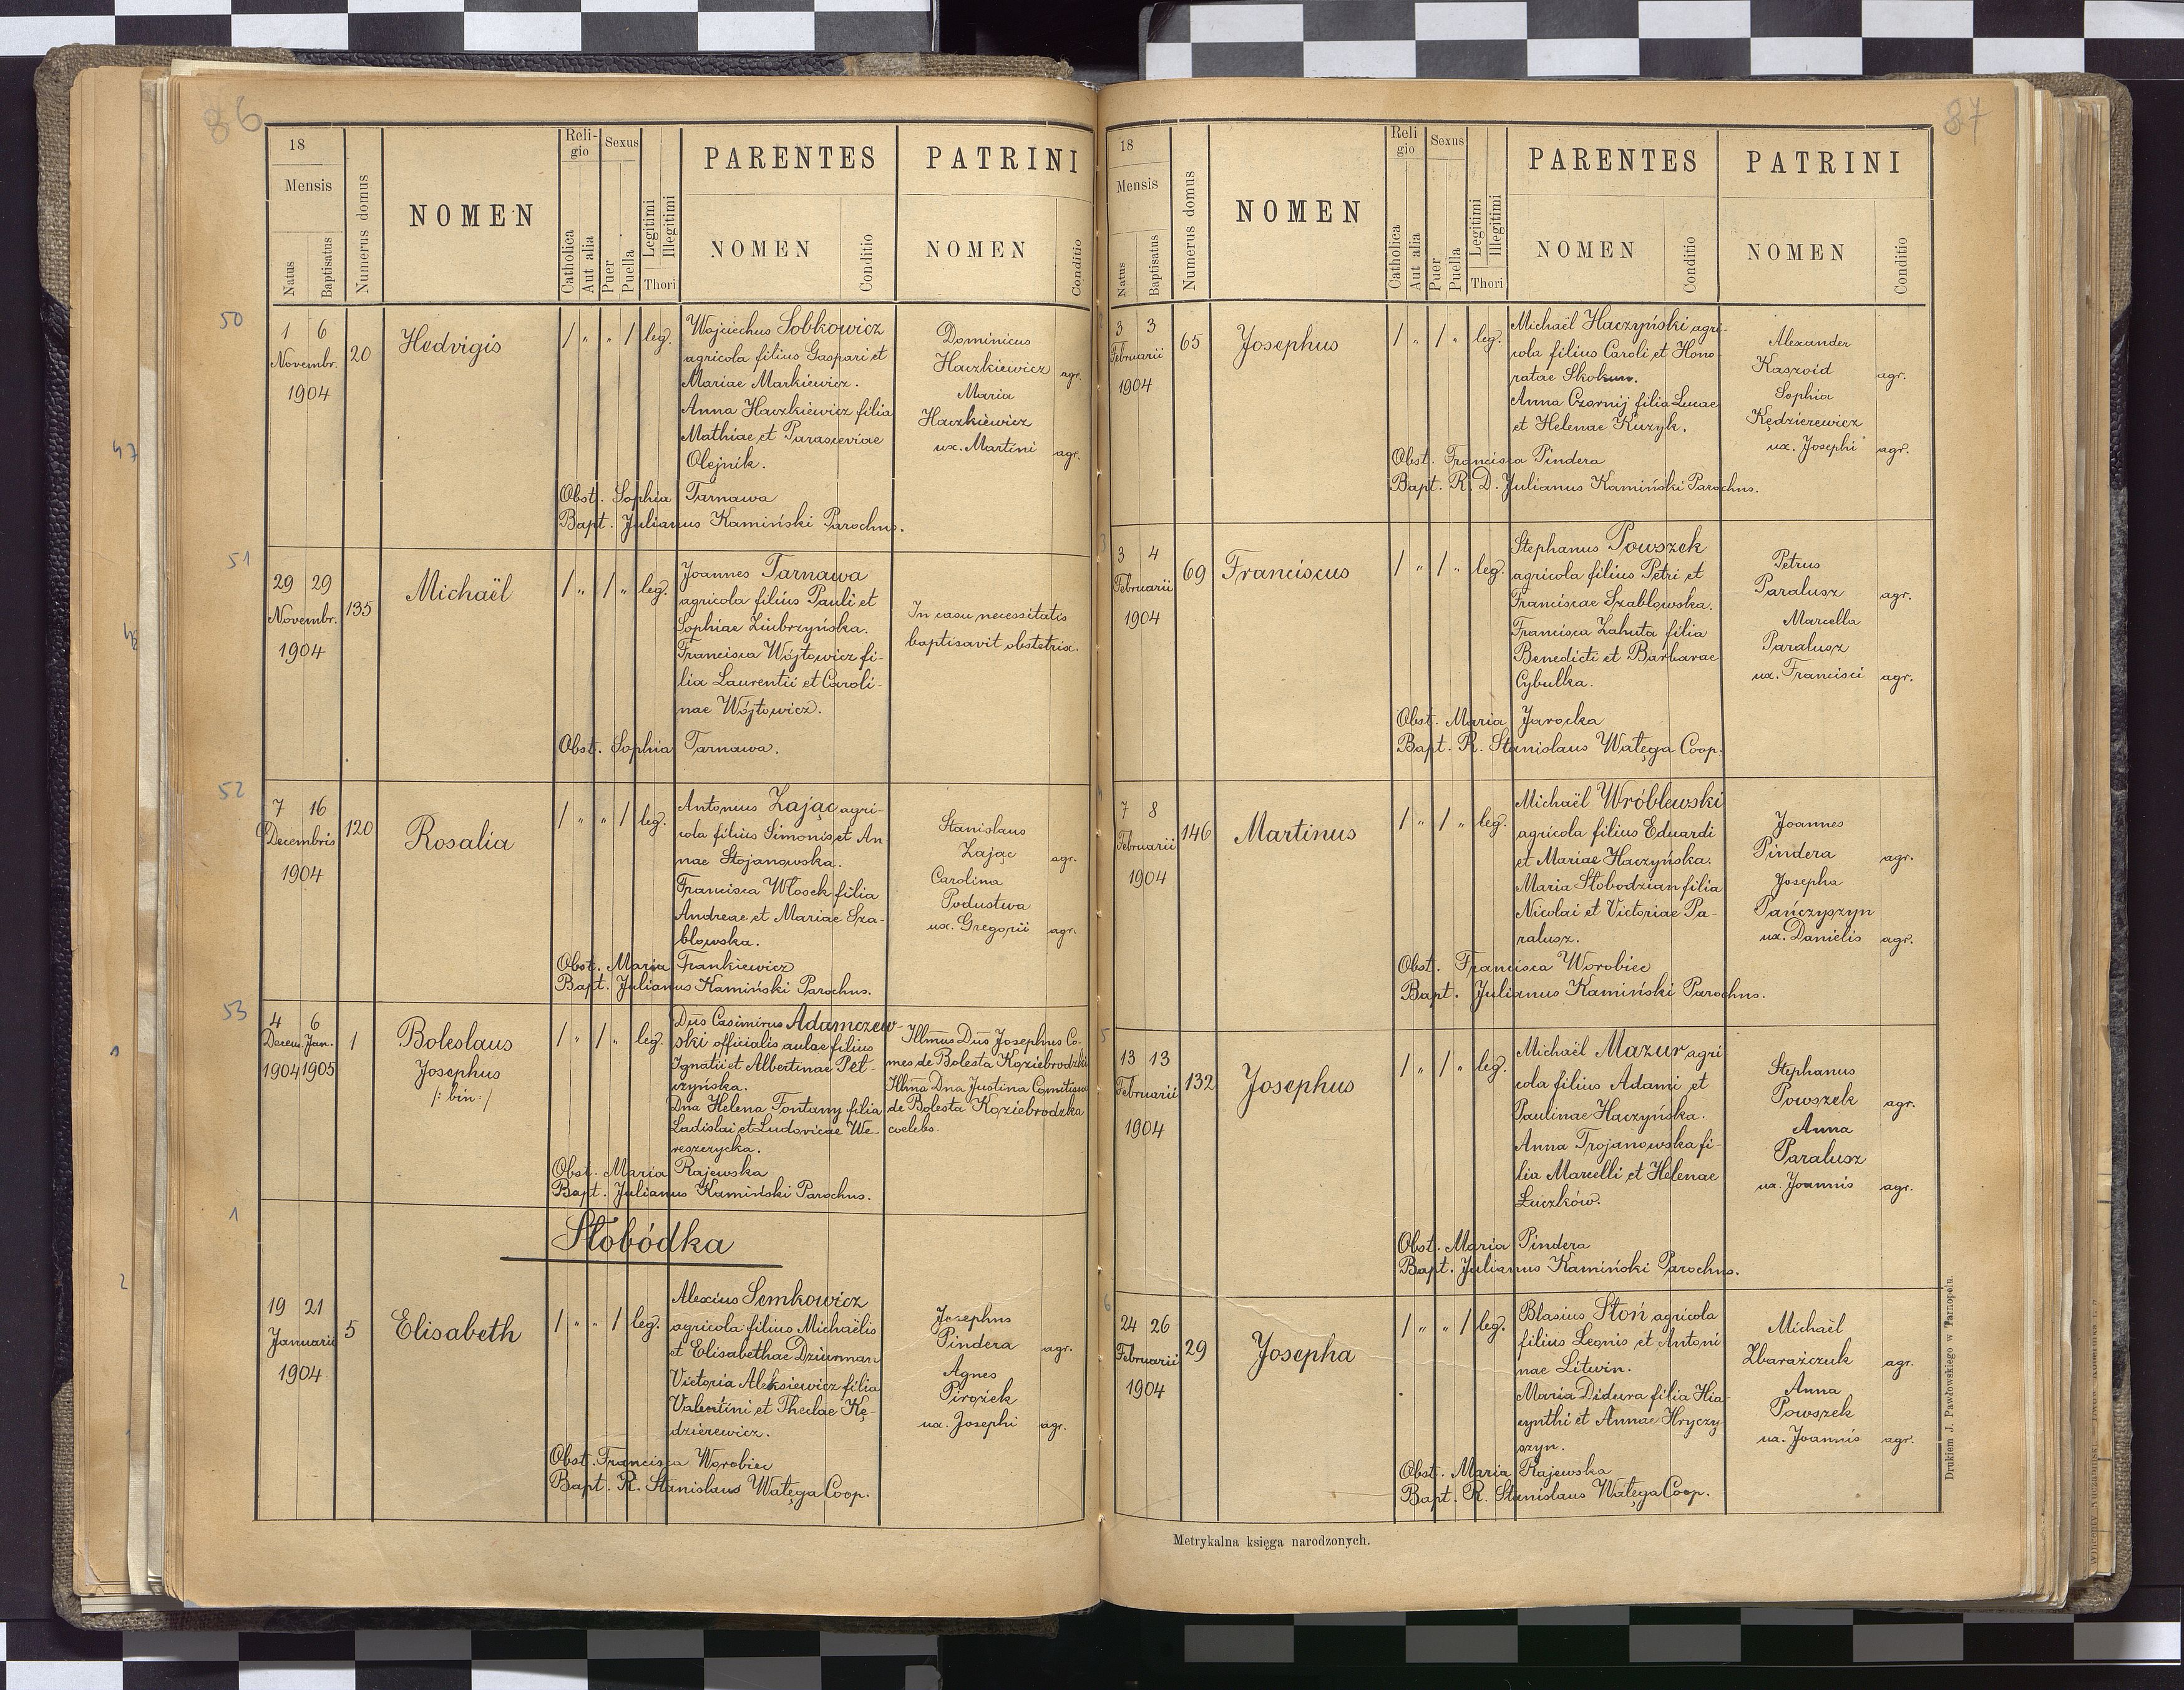 86
18
Mensis
Natus
Baptisatus
Numerus domus
NOMEN
Reli-
gio
Catholica
Aut alia
Sexus
Puer
Puella
Legitimi
Illegitimi
Thori
PARENTES
NOMEN
Conditio
PATRINI
NOMEN
Conditio
50
1 6
Novembr.
1904
20
Hedvigis
/ " " / leg.
Wojciechus Sobkowicz
agricola filius Gaspari et
Mariae Markiewicz.
Anna Haczkiewicz filia
Mathiae et Parasceviae
Olejnik.
Dominicus
Haczkiewicz agr.
Maria
Haczkiewicz
ux. Martini agr.
Obst. Sophia Tarnawa
Bapt. Julianus Kamiński Parochus.
51
29 29
Novembr.
1904
135
Michaël
/ " / " leg.
Joannes Tarnawa
agricola filius Pauli et
Sophiae Ziubrzyńska.
Francisca Wójtowicz fi-
lia Laurentii et Caroli-
nae Wójtowicz.
In casu necessitatis
baptisavit obstetrix.
Obst. Sophia Tarnawa.
52
7 16
Decembris
1904
120
Rosalia
/ " " / leg.
Antonius Zając agri-
cola filius Simonis et An
nae Stojanowska.
Francisca Włosek filia
Andreae et Mariae Sza-
blowska.
Stanislaus
Zając agr.
Carolina
Podustwa
ux. Gregorii agr.
Obst. Maria Frankiewicz
Bapt. Julianus Kamiński Parochus.
53
4 6
Decem. Jan.
1904 1905
1
Boleslaus
Josephus
/: bin :/
/ " / " leg.
Dūs Casimirus Adamczew-
ski officialis aulae filius
Ignatii et Albertinae Pet-
czyńska.
Dna Helena Fontany filia
Ladislai et Ludovicae We-
reszczycka.
Illmus Dūs Josephus Co-
mes de Bolesta Koziebrodzki
Illma Dna Justina Comitissa
de Bolesta Koziebrodzka
coelebs.
Obst. Maria Rajewska
Bapt. Julianus Kamiński Parochus.
1
Słobódka
19 21
Januarii
1904
5
Elisabeth
/ " " / leg.
Alexius Semkowicz
agricola filius Michaëlis
et Elisabethae Dziurman
Victoria Aleksiewicz filia
Valentini et Theclae Kę-
dzierewicz.
Josephus
Pindera agr.
Agnes
Pirożek
ux. Josephi agr.
Obst. Francisca Worobiec
Bapt. R. Stanislaus Wałęga Coop.
47
48
2
87
18
Mensis
Natus
Baptisatus
Numerus domus
NOMEN
Reli
gio
Catholica
Aut alia
Sexus
Puer
Puella
Legitimi
Illegitimi
Thori
PARENTES
NOMEN
Conditio
PATRINI
NOMEN
Conditio
3 3
Februarii
1904
65
Josephus
/ " / " leg.
Michaël Haczyński agri-
cola filius Caroli et Hono
ratae Skokun.
Anna Czornij filia Lucae
et Helenae Kuzyk.
Alexander
Kaszoid agr.
Sophia
Kędzierewicz
ux. Josephi agr.
Obst. Francisca Pindera
Bapt. R. D. Julianus Kamiński Parochus.
3
3 4
Februarii
1904
69
Franciscus
/ " / " leg.
Stephanus Powszek
agricola filius Petri et
Franciscae Szablowska.
Francisca Zahuta filia
Benedicti et Barbarae
Cybulka.
Petrus
Paralusz agr.
Marcella
Paralusz
ux. Francisci agr.
Obst. Maria Jarocka
Bapt. R. Stanislaus Wałęga Coop.
7 8
Februarii
1904
146
Martinus
/ " / " leg.
Michaël Wróblewski
agricola filius Eduardi
et Mariae Haczyńska.
Maria Słobodzian filia
Nicolai et Victoriae Pa-
ralusz.
Joannes
Pindera agr.
Josepha
Pańczyszyn
ux. Danielis agr.
Obst. Francisca Worobiec
Bapt. Julianus Kamiński Parochus.
5
13 13
Februarii
1904
132
Josephus
/ " / " leg.
Michaël Mazur agri-
cola filius Adami et
Paulinae Haczyńska.
Anna Trojanowska fi-
lia Marcelli et Helenae
Łuczków.
Stephanus
Powszek agr.
Anna
Paralusz
ux. Joannis agr.
Obst. Maria Pindera
Bapt. Julianus Kamiński Parochus.
6
24 26
Februarii
1904
29
Josepha
/ " " / leg.
Blasius Słoń agricola
filius Leonis et Antoni
nae Litwin.
Maria Didura filia Hia-
cynthi et Annae Hryczy
szyn.
Michaël
Zbarażczuk agr.
Anna
Powszek
ux. Joannis agr.
Obst. Maria Rajewska
Bapt. R. Stanislaus Wałęga Coop.
Metrykalna księga narodzonych.
Drukiem J. Pawłowskiego w Tarnopolu.